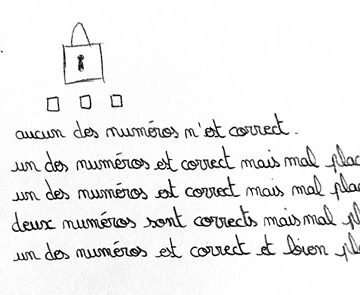 aucun des numéros n'est correct.
un des numéros est correct mais mal
un des numéros est correct mais mal
deux numéros sont corrects mais mal
un des numéros est correct et bien